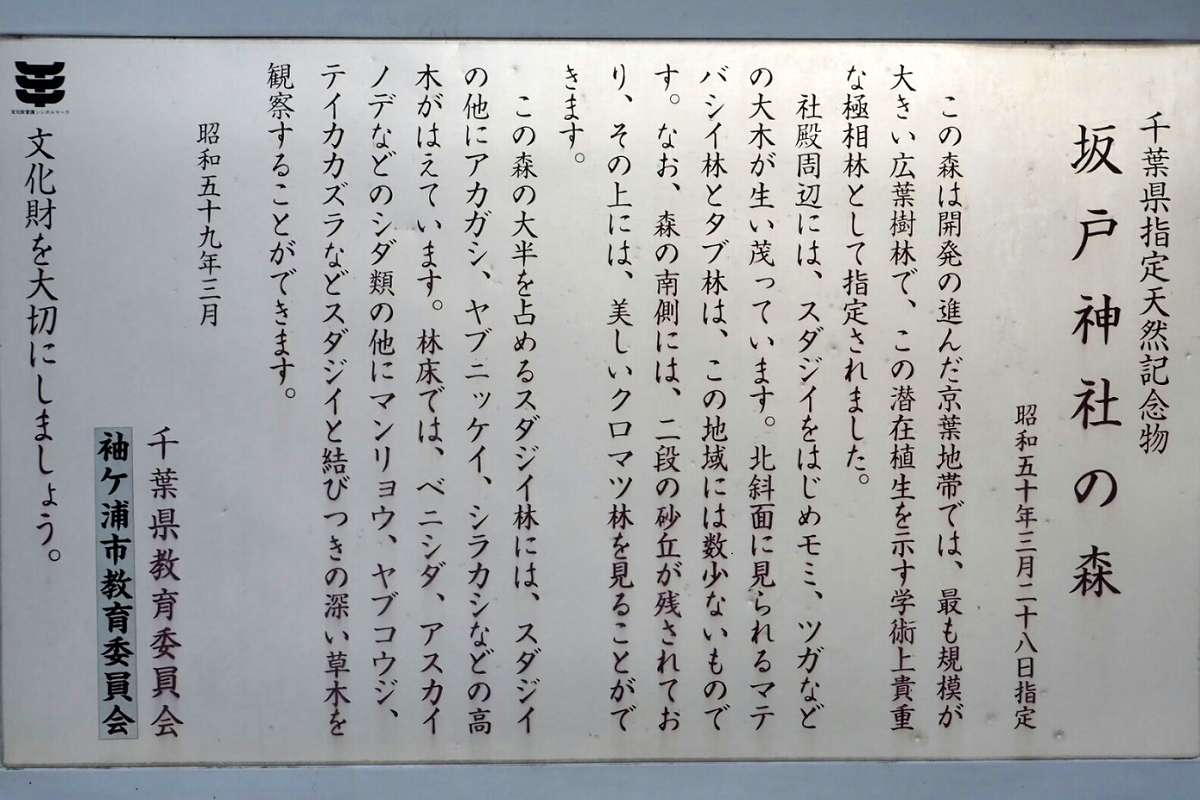 千葉県指定天然記念物
坂戸神社の森
昭和五十年三月二十八日指定
この森は開発の進んだ京葉地帯では、最も規模が
大きい広葉樹林で、この潜在植生を示す学術上貴重
な極相林として指定されました。
社殿周辺には、スダジイをはじめモミ、ツガなど
の大木が生い茂っています。北斜面に見られるマテ
バシイ林とタブ林は、この地域には数少ないもので
す。なお、森の南側には、二段の砂丘が残されてお
り、その上には、美しいクロマツ林を見ることがで
きます。
この森の大半を占めるスダジイ林には、スダジイ
の他にアカガシ、ヤブニッケイ、シラカシなどの高
木がはえています。林床では、ベニシダ、アスカイ
ノデなどのシダ類の他にマンリョウ、ヤブコウジ、
テイカカズラなどスダジイと結びつきの深い草木を
観察することができます。
昭和五十九年三月
千葉県教育委員会
袖ケ浦市教育委員会
文化財を大切にしましょう。